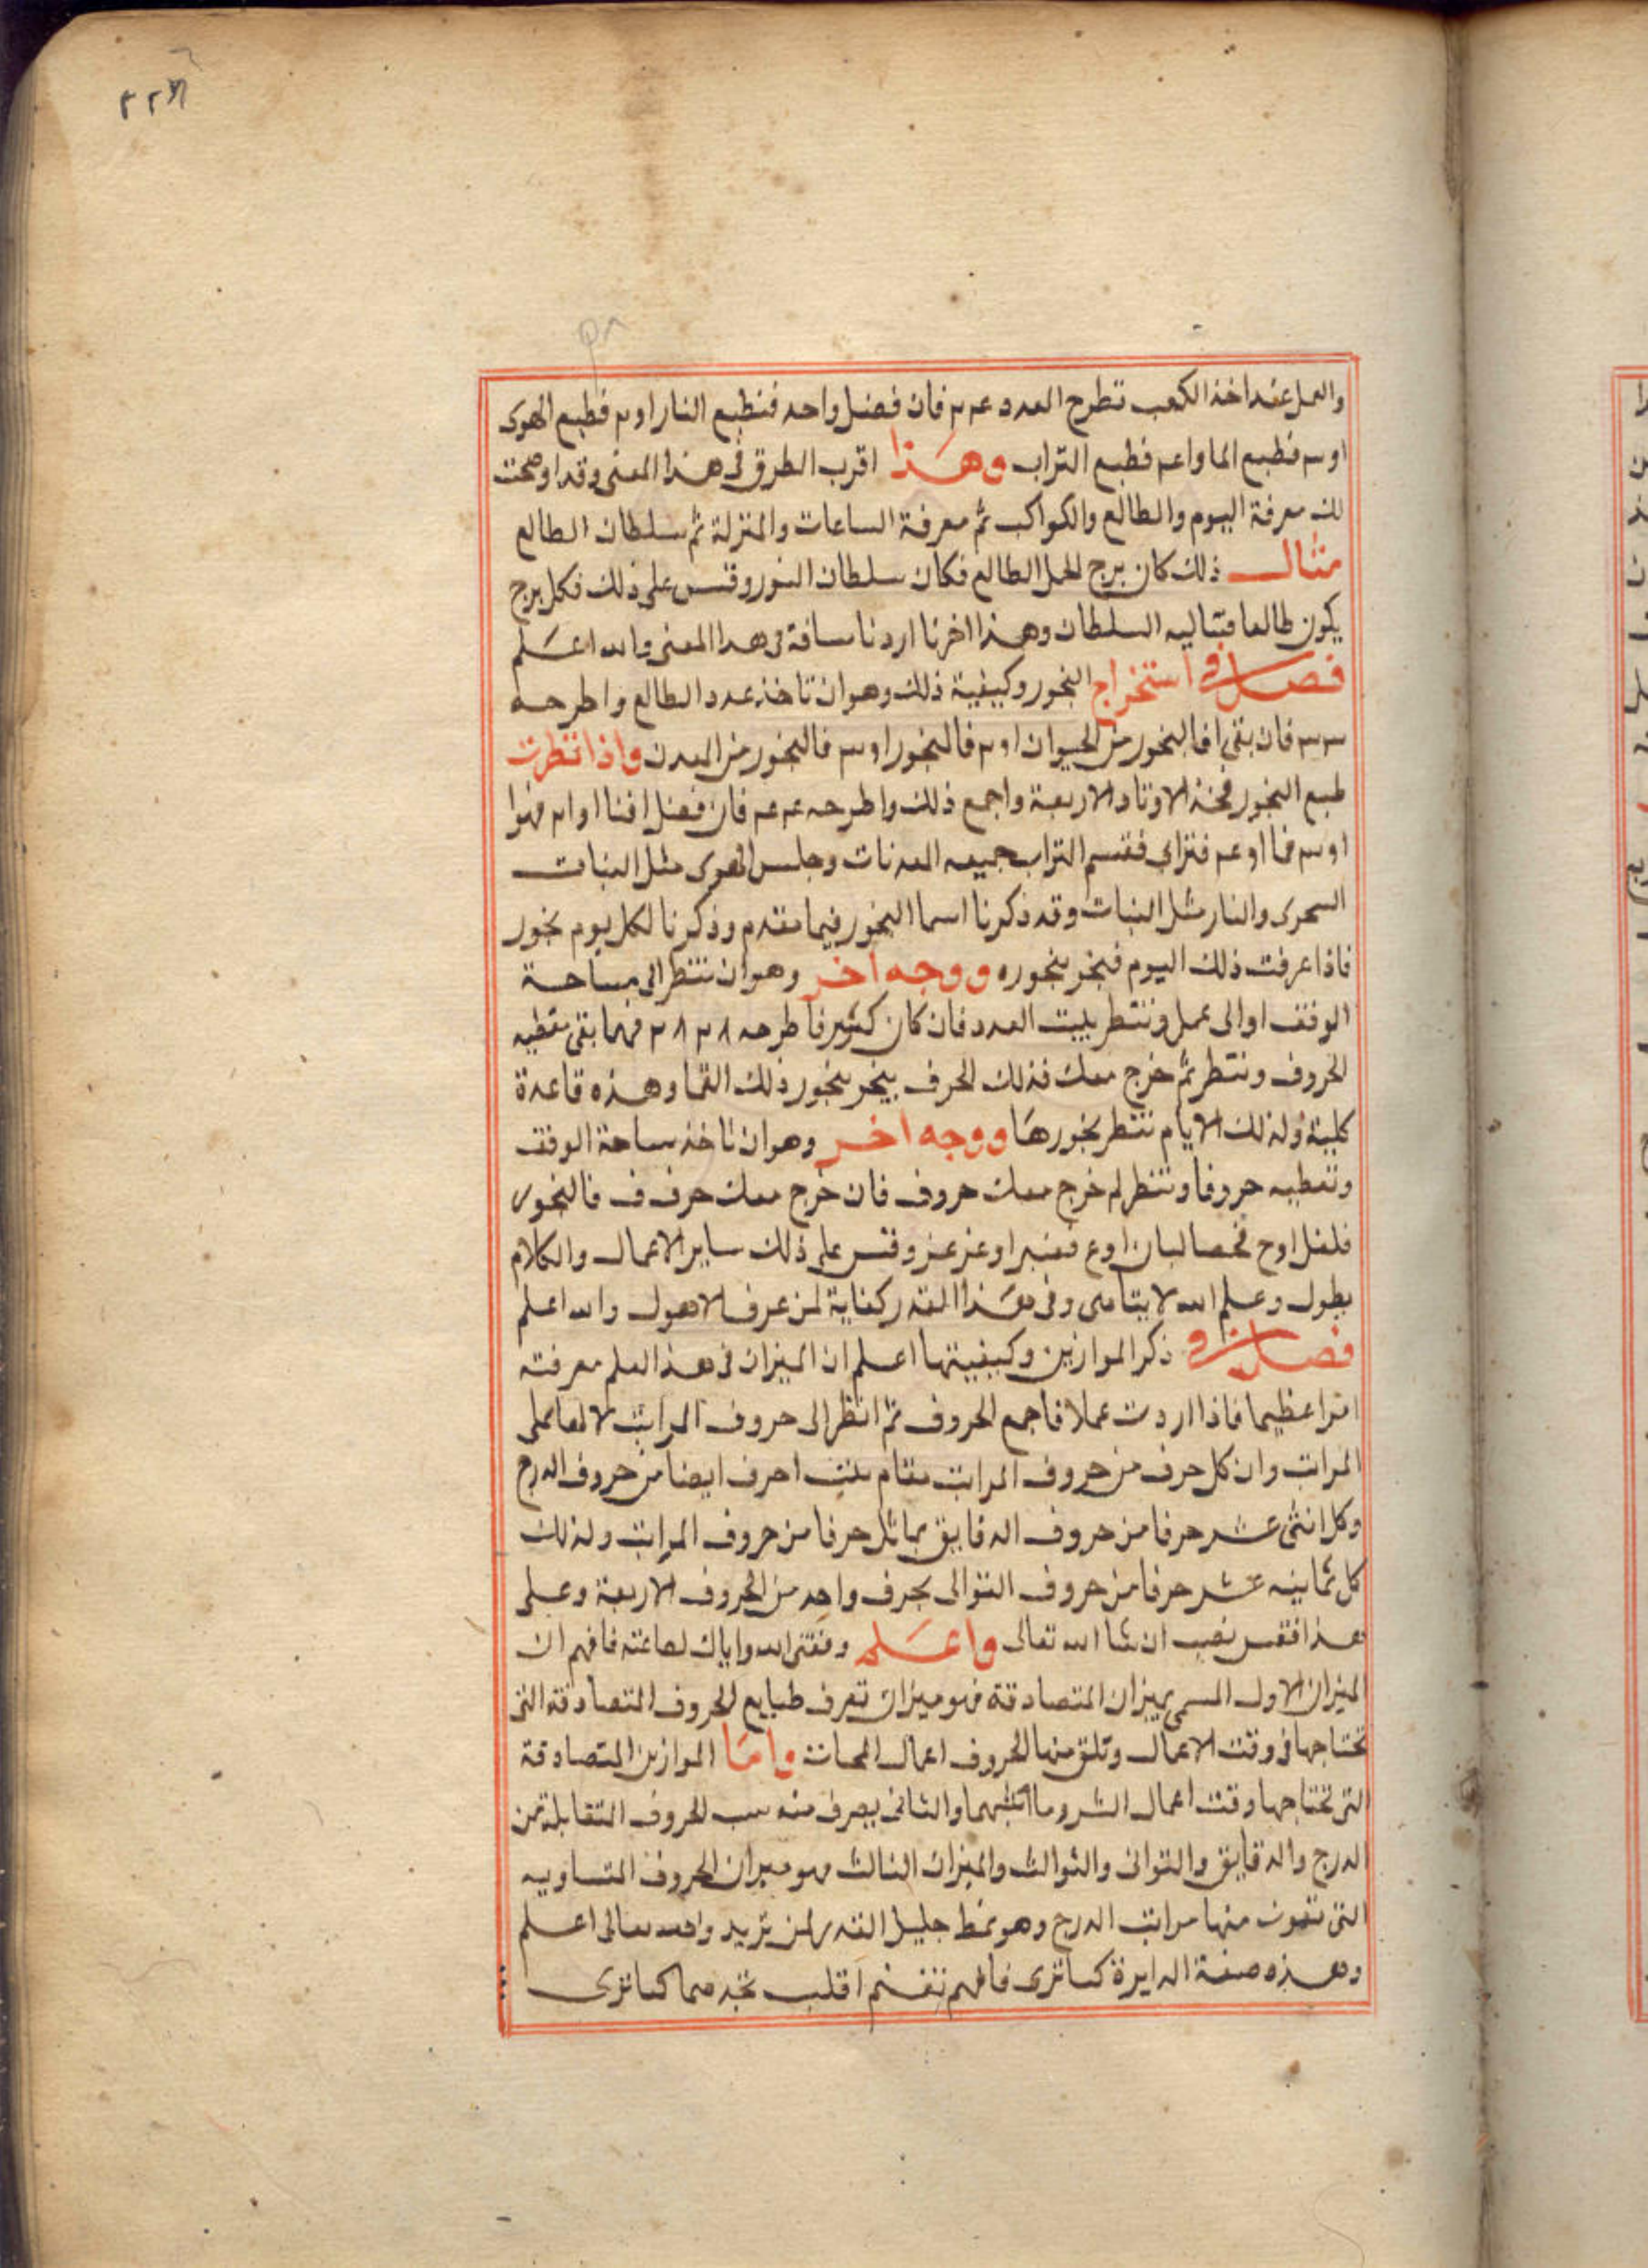 والعمل عند اخذ الكعب تطرح العدد عم م فان فضل واحد فنطبع النار او م فطبع الهوى
او سم فطبع الما او عم فطبع التراب وهذا اقرب الطرق فى هذا المعنى وقد اوضحت
لك معرفة اليوم والطالع والكواكب ثم معرفة الساعات والمنزلة ثم سلطان الطالع
مثال ذلك كان برج الحمل الطالع فكان سلطان الثور وقس على ذلك فكل برج
يكون طالعا السلطان وهذا اخر ما اردنا فى هذا المعنى والله اعلم
فصل فى استخراج البخور وكيفية ذلك وهو ان تاخذ عدد الطالع واطرحه
سم سم فان بقى ا فالبخور من الحيوان او م فالبخور او سم فالبخور من المعدن واذا نظرت
طبع البخور فخذ الاوتاد الاربعة واجمع ذلك واطرحه عم عم فان فضل
او سم فما او عم فترابى فقسم التراب جميعه المعدنات وجلس الهوى مثل النبات
السحرى والنار مثل النبات وقد ذكرنا اسما البخور فيما تقدم وذكرنا لكل يوم بخور
فاذا عرفت ذلك اليوم فبخر ببخوره ووجه اخر وهو ان تنظر الى مساحة
الوفق او الى عمل وتنظر بيت العدد فان كان كثير فاطرحه ٢٨ ٢٨ فمهما بقى تعطيه
الحروف وتنظر ثم خرج معك فذلك الحرف يبخر ببخور ذلك وهذه قاعدة
كلية ولذلك الايام تنظر بخورها ووجه اخر وهو ان تاخذ مساحة الوفق
وتعطيه حروفا وتنظر لم خرج معك حروف فان خرج معك حرف ف فالبخور
فلفل او ح فحصا لبان او ع فعنبر او وقس على ذلك ساير الاعمال والكلام
يطول وعلم الله لا يتناهى وفى هذا القدر كفاية لمن عرف الاصول والله اعلم
فصل فى ذكر الموازين وكيفيتها اعلم ان الميزان فى هذا العلم معرفته
امرا عظيما فاذا اردت عملا فاجمع الحروف ثم انظر الى حروف المراتب
المراتب وان كل حرف من حروف المراتب مقام احرف ايضا من حروف الدرج
وكل اثنى عشر حرفا من حروف الدقايق يماثل حرفا من حروف المراتب ولذلك
كل ثمانيه عشر حرفا من حروف التوالى بحرف واحد من الحروف الاربعة وعلى
هذا فقس تصب ان شا الله تعالى واعلم وفقنى الله واياك لطاعته فافهم ان
الميزان الاول المسمى بميزان المتصادقة فهو ميزان تعرف طبايع الحروف المتصادقة التى
تحتاجها فى وقت الاعمال وتلق منها الحروف اعمال المحبات واما الموازين المتصادقة
التى تحتاجها وقت اعمال الشر وما اشبهها والثانى يعرف منه الحروف المتقابلة من
الدرج والدقايق والثوانى والثوالث والميزان الثالث فهو ميزان الحروف المتساويه
التى منها مراتب الدرج وهو نمط جليل القدر لمن يريد والله تعالى اعلم
وهذه صفة الدايرة كما ترى فافهم تغنم اقلب تجدهما كما ترى